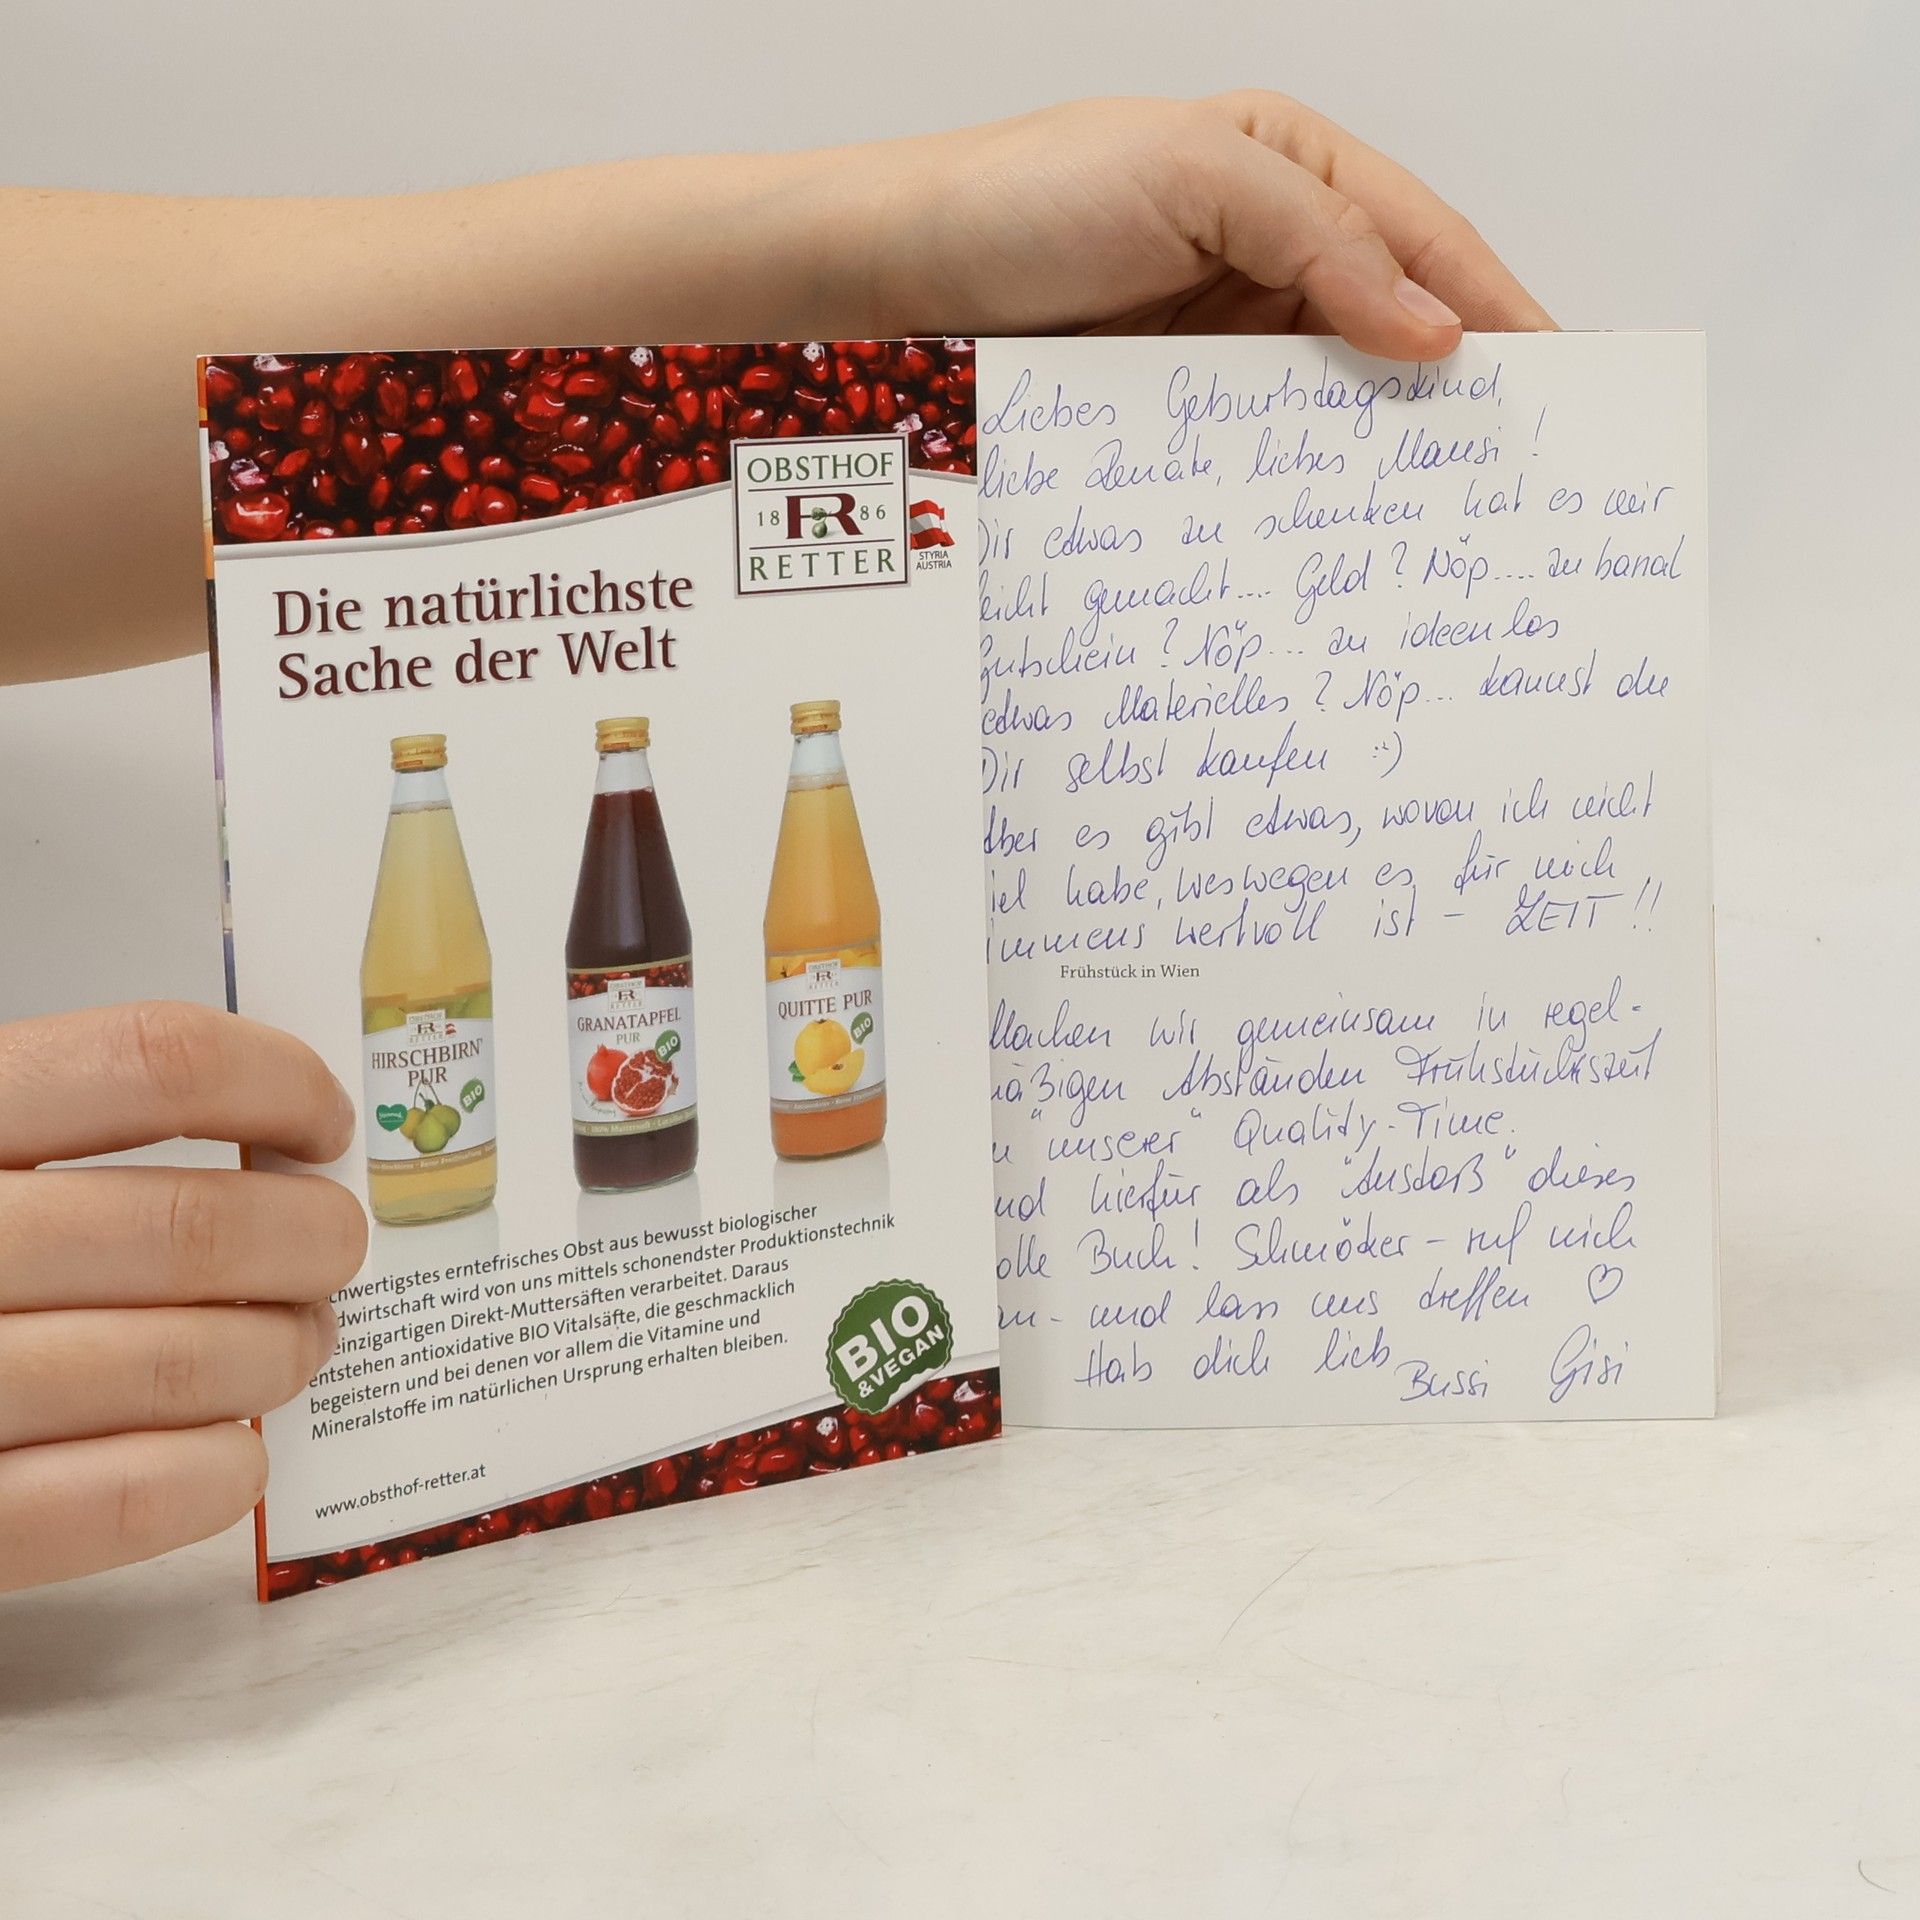 OBSTHOF
18 R 86
RETTER
STYRIA
AUSTRIA
Die natürlichste
Sache der Welt
OBSTHOF
R
RETTER
HIRSCHBIRN
PUR
BIO
OBSTHOF
R
RETTER
GRANATAPFEL
PUR
BIO
OBSTHOF
R
RETTER
QUITTE PUR
BIO
chwertigstes erntefrisches Obst aus bewusst biologischer
dwirtschaft wird von uns mittels schonendster Produktionstechnik
einzigartigen Direkt-Muttersäften verarbeitet. Daraus
entstehen antioxidative BIO Vitalsäfte, die geschmacklich
begeistern und bei denen vor allem die Vitamine und
Mineralstoffe im natürlichen Ursprung erhalten bleiben.
BIO
& VEGAN
www.obsthof-retter.at
Liebes Geburtstagskind,
liebe Renate, liebes Mausi!
Dir etwas zu schenken hat es mir
leicht gemacht.... Geld? Nöp.... zu banal
Gutschein? Nöp... zu ideenlos
etwas Materielles? Nöp... kannst du
Dir selbst kaufen :-)
Aber es gibt etwas, wovon ich nicht
viel habe, weswegen es für mich
immens wertvoll ist - ZEIT!!
Frühstück in Wien
Machen wir gemeinsam in regel-
mäßigen Abständen Frühstückszeit
zu "unserer" Quality-Time.
und hierfür als "Anstoß" dieses
tolle Buch! Schmöker - ruf mich
an - und lass uns treffen ♡
Hab dich lieb
Bussi Gisi